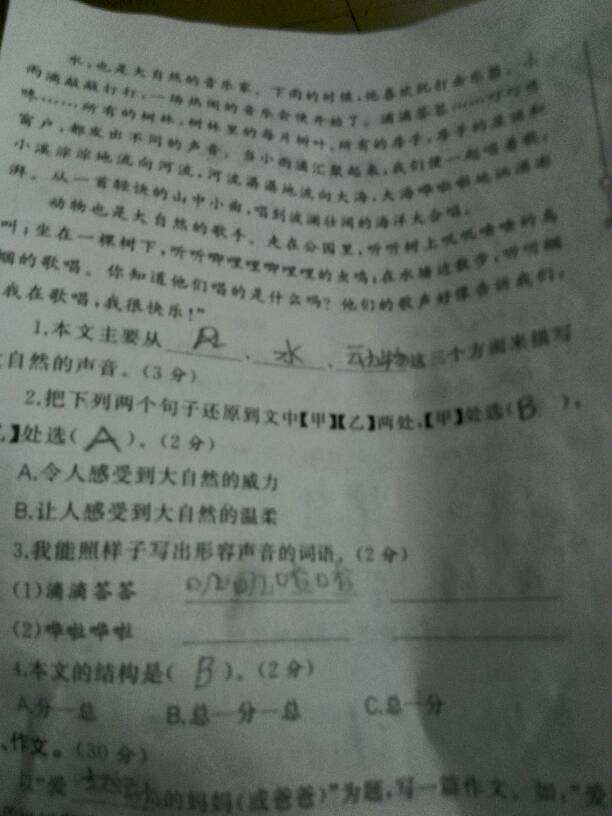 水,也是大自然的音乐家。下雨的时候,他喜欢玩打击乐器。小
雨滴敲敲打打,一场热闹的音乐会便开始了。滴滴答答……叮叮咚
咚……所有的树林,树林里的每片树叶,所有的房子,房子的屋顶和
窗户,都发出不同的声音。当小雨滴汇聚起来,我们便一起唱着歌:
小溪淙淙地流向河流,河流潺潺地流向大海,大海哗啦啦地汹涌澎
湃。从一首轻快的山中小曲,唱到波澜壮阔的海洋大合唱。
动物也是大自然的歌手。走在公园里,听听树上叽叽喳喳的鸟
叫;坐在一棵树下,听听唧哩哩唧哩哩的虫鸣;在水塘边散步,听听蝈
蝈的歌唱。你知道他们唱的是什么吗?他们的歌声好像告诉我们:
我在歌唱,我很快乐!”
1.本文主要从 风 、 水 、 动物 这三个方面来描写
大自然的声音。(3分)
2.把下列两个句子还原到文中【甲】【乙】两处,【甲】处选( B )。
乙】处选( A )。(2分)
A.令人感受到大自然的威力
B.让人感受到大自然的温柔
3.我能照样子写出形容声音的词语。(2分)
(1)滴滴答答 叽叽喳喳
(2)哗啦哗啦
4.本文的结构是( B )。(2分)
A.分—总 B.总—分—总 C.总—分
、作文。(30分)
以“爱 的妈妈(或爸爸)”为题,写一篇作文。如,“爱